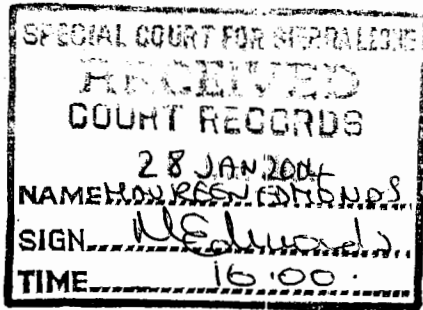 SPECIAL COURT FOR SIERRA LEONE
RECEIVED
COURT RECORDS
28 JAN 2004
NAME MAUREEN EDMONDS
SIGN MEdmonds
TIME 16:00